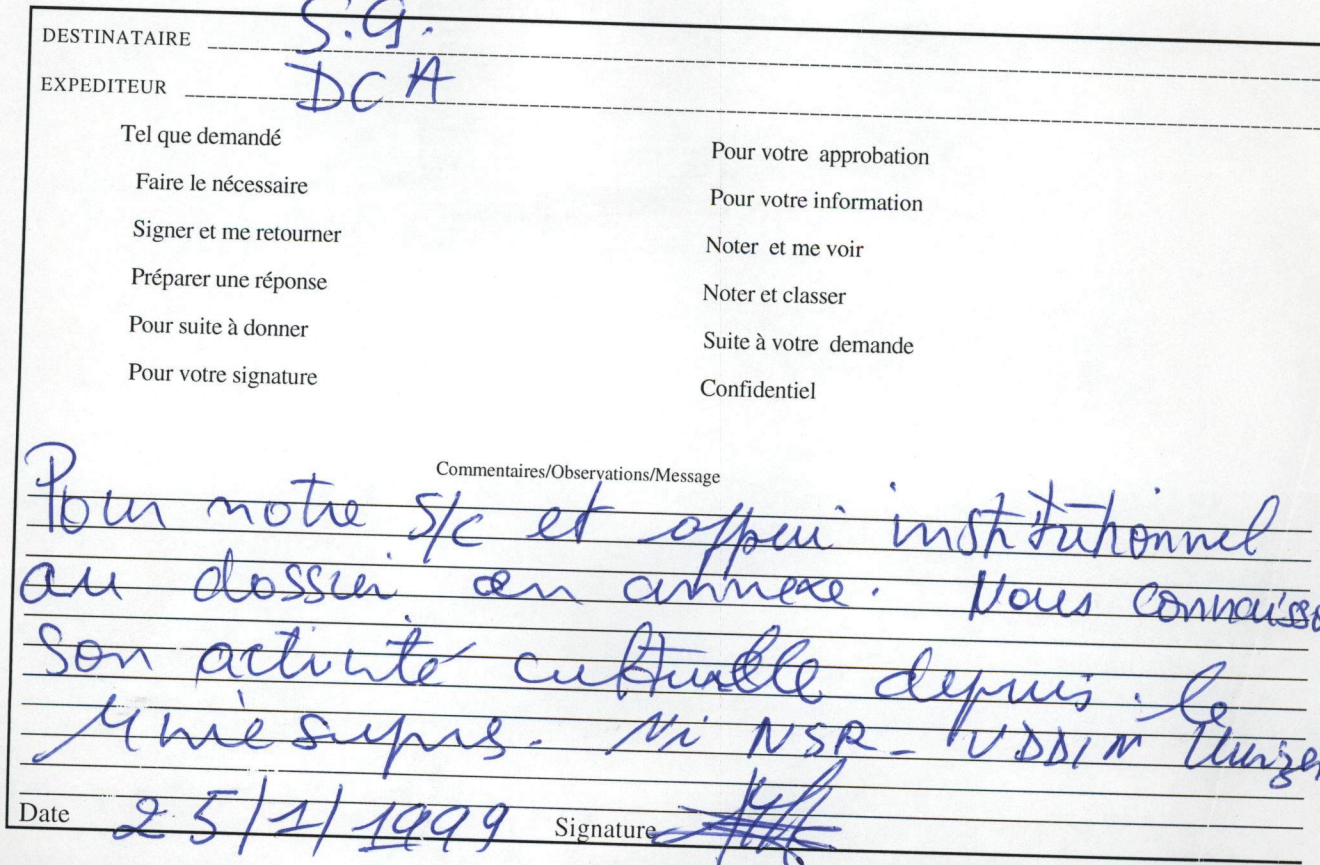 DESTINATAIRE S.G.
EXPEDITEUR DCA
Tel que demandé
Faire le nécessaire
Signer et me retourner
Préparer une réponse
Pour suite à donner
Pour votre signature
Pour votre approbation
Pour votre information
Noter et me voir
Noter et classer
Suite à votre demande
Confidentiel
Commentaires/Observations/Message
Pour notre S/C et appui institutionnel
au dossier en annexe. Nous connaisso
son activité culturelle depuis le
NSR-UDDIN
Date 25/1/1999 Signature